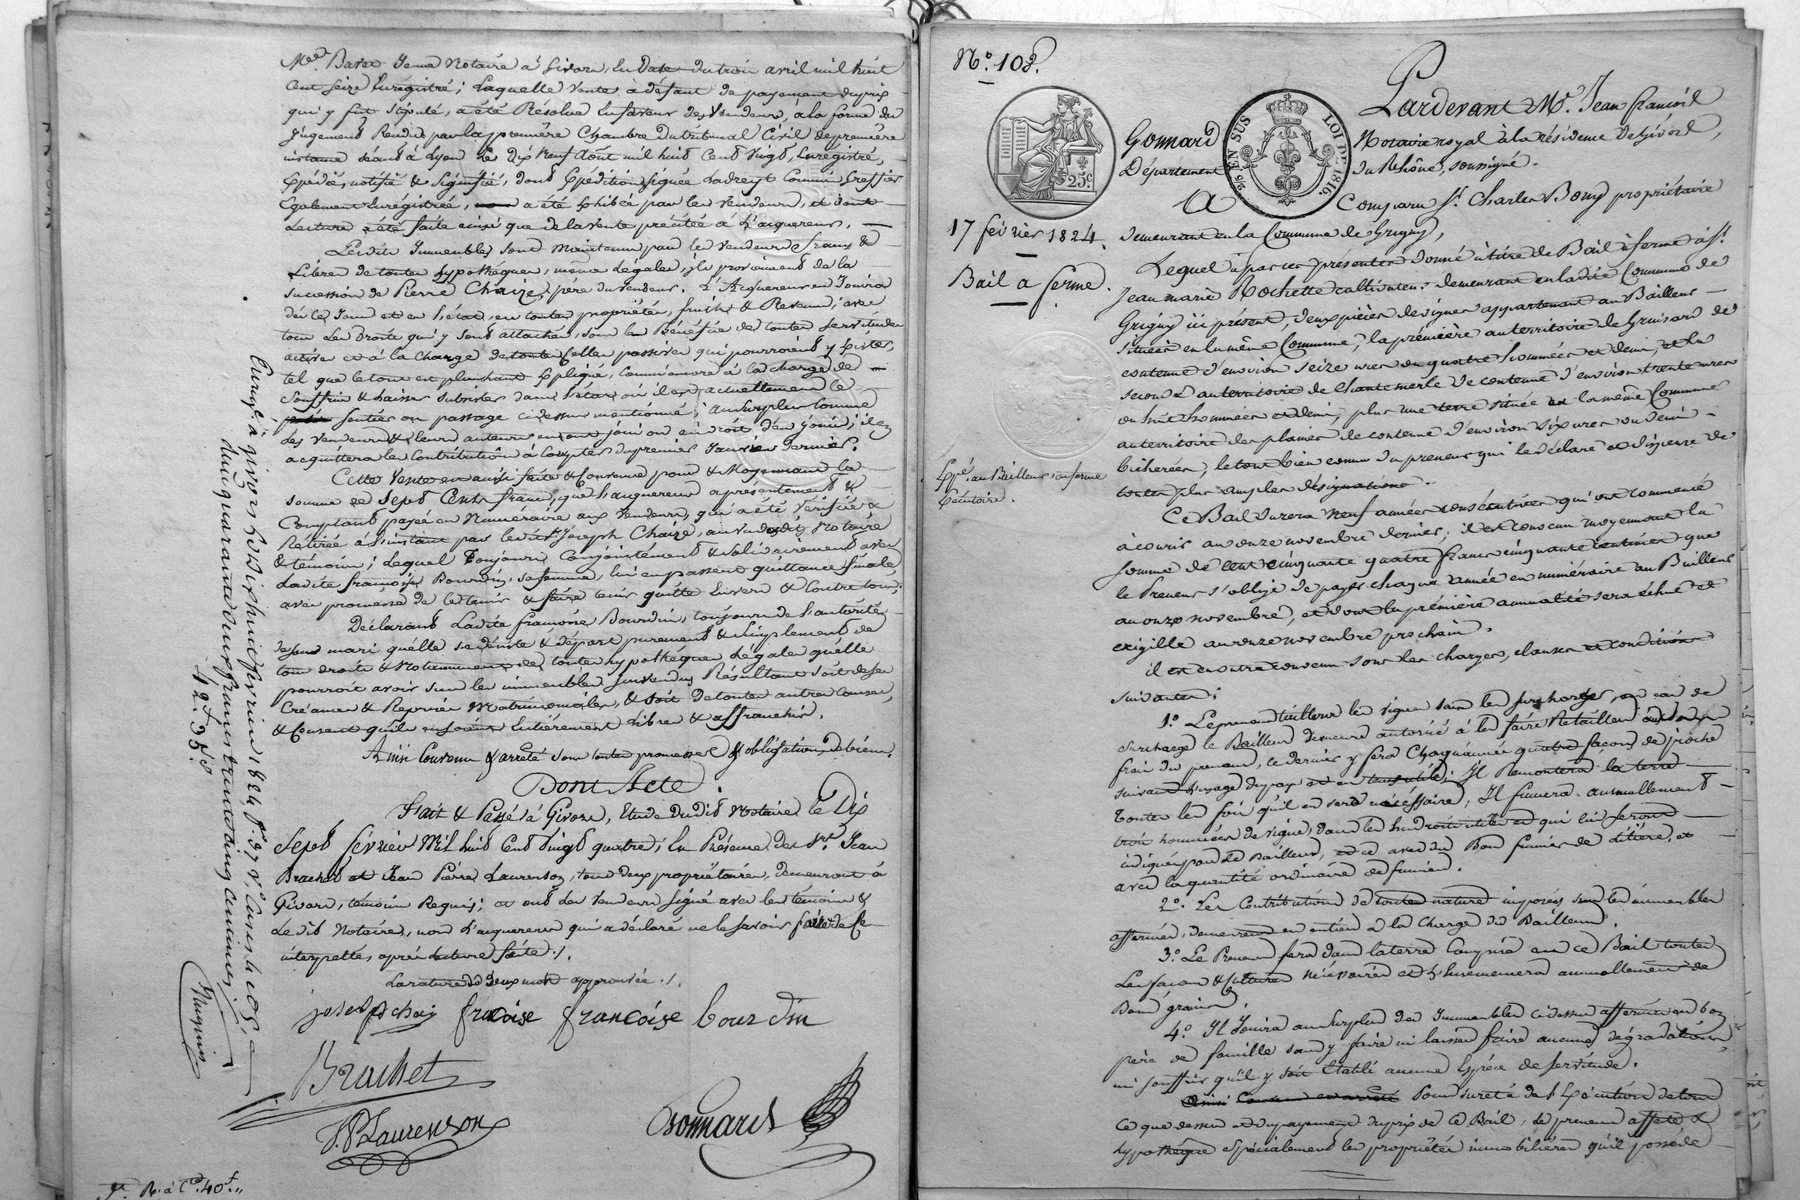 Me. Baret Jeune Notaire à Givors, en date du trois avril mil huit
cent seize Enregistré; Laquelle vente à défaut de payement du prix
qui y fut stipulé, a été Résolue en faveur des Vendeurs, à la forme du
Jugement Rendu par la première Chambre du tribunal Civil de première
instance séant à Lyon le Dix neuf Août mil huit Cent vingt, Enregistré,
Expédié, notifié & signifié, dont Expédition signée Ladreyt Commis Greffier
Egalement Enregistrée, a été Exhibée par les vendeurs, et dont
Lecture a été faite ainsi que de la vente précitée à L'acquereur.
Lesdits Immeubles sont maintenus par les vendeurs francs &
Libres de toutes hypothéques, même Légales; ils proviennent de la
succession de Pierre Chaize, père du vendeur. L'Acquereur en Jouira
dès ce Jour et en l'état, en toute propriété, fruits & Revenus, avec
tous les Droits qui y sont attachés, sous le Bénéfice de toutes servitudes
actives et à la charge de toutes Celles passives qui pourroient y Exister,
tel que le tout est plus haut Expliqué, comme encore à la charge de
souffrir & laisser subsister dans l'état où il est actuellement le
sentier ou passage ci dessus mentionné; au surplus comme
les vendeurs & leurs auteurs en ont joui ou eu droit d'en jouir; il en
acquittera les Contributions à Compter du premier Janvier dernier.
Cette Vente est ainsi faite & Convenue pour & Moyennant la
somme de Sept Cents francs, que l'acquereur a présentement &
Comptant payée en Numéraire aux Vendeurs, qui a été vérifiée &
Retirée à l'instant par ledit Joseph Chaize, au vu desdits Notaire
& témoins; Lequel toujours Conjointement & solidairement avec
Ladite françoise Bourdin, sa femme, lui en passent quittance finale,
avec promesse de le tenir & faire tenir quitte Envers & Contre tous;
Déclarant Ladite françoise Bourdin, toujours de l'autorité
de son mari qu'elle se désiste & départ purement & simplement de
tous droits & Notamment de toute hypothéque Légale qu'elle
pourroit avoir sur les immeubles sus vendus Résultant soit de ses
Créances & Reprises Matrimoniales, & soit de toutes autres Causes,
& Consent qu'ils en soient Entièrement Libres & affranchis.
Ainsi Convenu & arrêté sous toutes promesses & obligations de biens.
Dont Acte.
Fait & Passé à Givors, Etude dudit Notaire, le Dix
Sept février Mil huit Cent Vingt quatre; En Présence des Srs. Jean
Brachet et Jean Pierre Laurenson, tous deux propriétaires, demeurant à
Givors, témoins Requis; et ont les Vendeurs signé avec les témoins &
Ledit Notaire, non L'acquereur qui a déclaré ne le savoir faire de ce
interpellés après lecture faite ./.
La rature de deux mots approuvée ./.
joseph chaiz fracoise françoise bourdin
Brachet
J.P. Laurenson
Gonnard
R. à Co. 40 f.
Enregistré à givors le dix huit février 1824 fo. 37 Vo. Cases
quarante deux francs trente cinq centimes
42f. 35c.
No. 108.
25 c
25 EN SUS LOI DE 1816.
17 février 1824.
Bail à ferme.
Expé. au Bailleur en forme
Exécutoire.
Pardevant Me. Jean francois
Gonnard Notaire royal à la résidence de Givors,
Département du Rhône, soussigné.
A Comparu Sr. Charles Bony propriétaire
demeurant en la Commune de Grigny,
Lequel a par ces présentes donné à titre de Bail à ferme à Sr.
Jean marie Rochette cultivateur demeurant en ladite Commune de
Grigny ici présent, deux pièces de vignes appartenant au Bailleur
situées en la même Commune; la première au territoire de Gruisard de
contenue d'environ seize ares ou quatre hommées et demi, et la
seconde au territoire de chante merle de contenue d'environ trente ares
ou huit hommées et demi; plus une terre située en la même Commune
au territoire des plaines de contenue d'environ dix ares ou demi
bicherée; le tout bien connu du preneur qui le déclare et dispense de
toutes plus amples désignations.
Ce Bail durera neuf années consécutives qui ont commencé
à courir au onze novembre dernier; il est convenu moyennant la
somme de Cent cinquante quatre francs cinquante centimes que
le Preneur s'oblige de payer chaque année en numéraire au Bailleur
au onze novembre, et dont la première annualité sera échue et
exigible au onze novembre prochain.
il est en outre convenu sous les charges, clauses et conditions
suivantes:
1.o Le preneur taillera les vignes sans les surcharger, en cas de
surcharge le Bailleur demeure autorisé à les faire Retailler aux
frais du preneur, ce dernier y fera Chaque année quatre façons de pioche
suivant l'usage du pays et en temps utile; Il Remontera la terre
toutes les fois qu'il en sera nécéssaire; Il fumera annuellement
trois hommées de vigne, dans les endroits utiles et qui lui seront
indiqués par le Bailleur, et ce avec du Bon fumier de Litière, et
avec la quantité ordinaire de fumier.
2.o Les Contributions de toutes natures imposées sur les immeubles
affermés, demeurent en entier à la Charge du Bailleur.
3.o Le Preneur fera dans la terre Comprise en ce Bail toutes
Les façons & Cultures nécéssaires et l'Ensemencera annuellement de
Bons grains.
4.o Il Jouira au Surplus des Immeubles ci dessus affermés en bon
père de famille sans y faire ni laisser faire aucunes dégradations,
ni souffrir qu'il y soit établi aucune Espèce de servitude.
Ainsi Convenu et arrêté Pour sureté de l'Exécution de tout
ce que dessus et du payement du prix de ce Bail, le preneur affecte &
hypothéque spécialement les propriétés immobilières qu'il possède